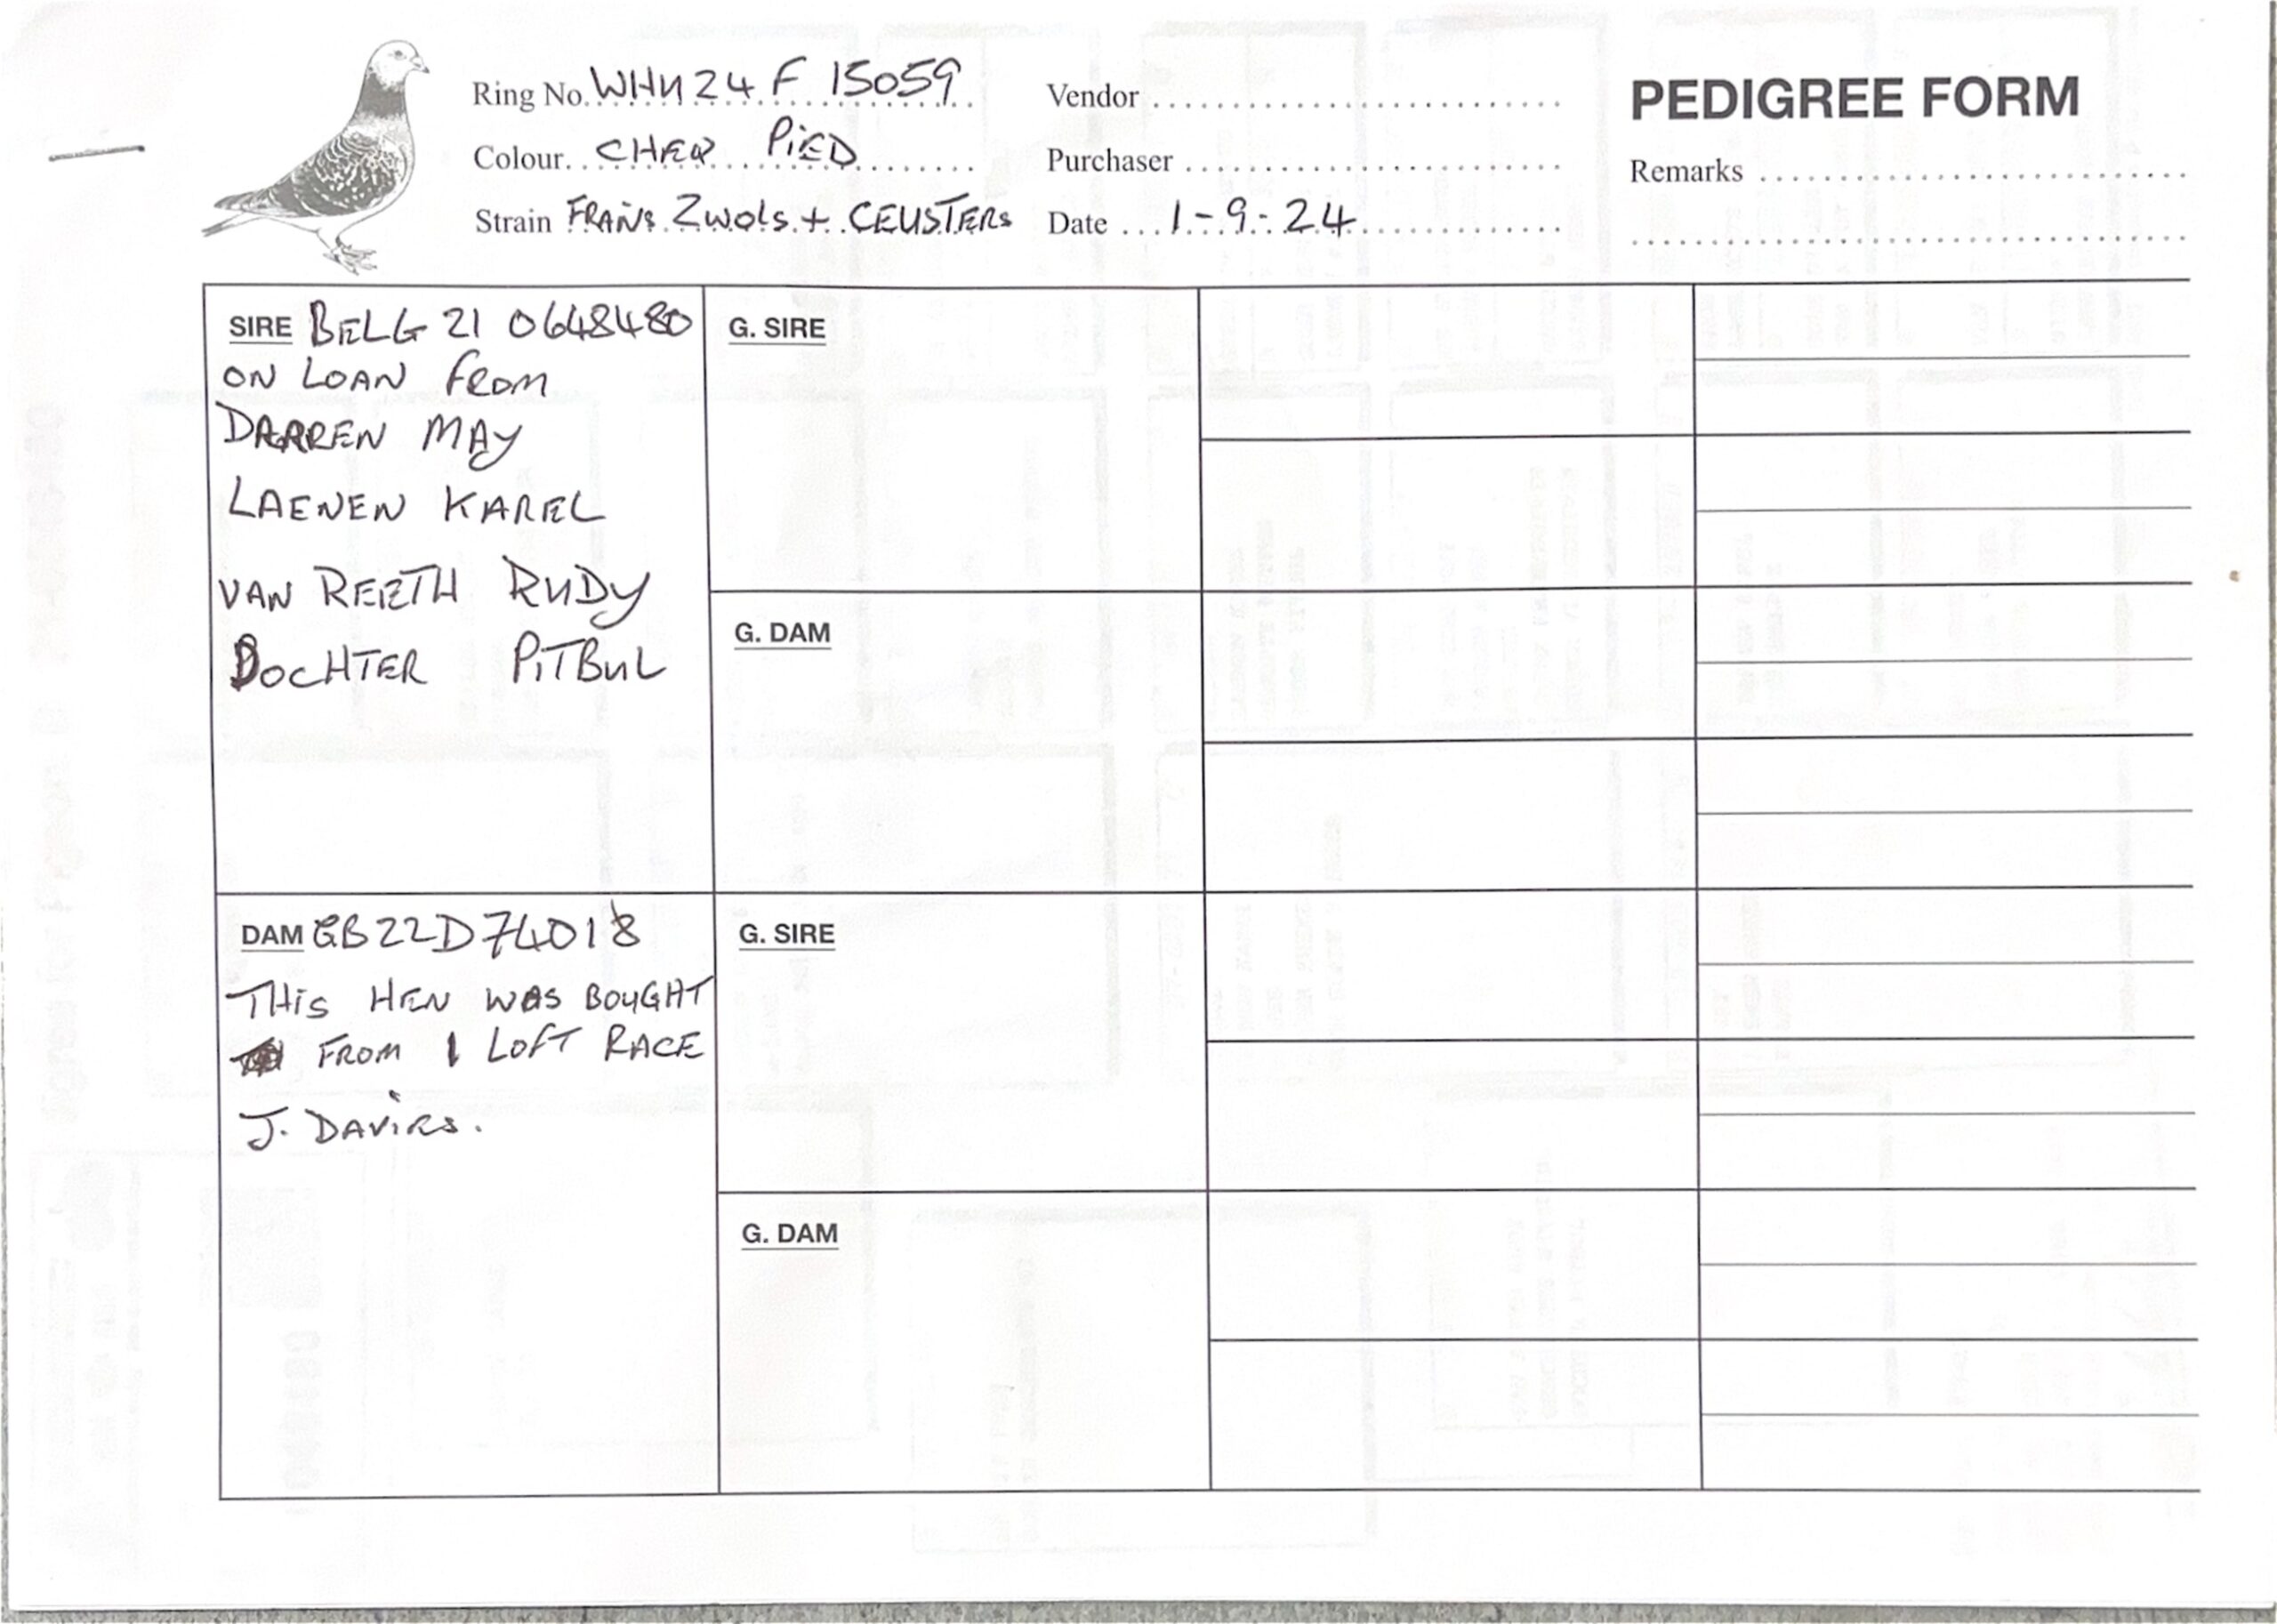 Ring No. WHU 24 F 15059
Colour.. CHEQ PIED
Strain FRANS ZWOLS + CEUSTERS
Vendor
Purchaser
Date 1-9-24
PEDIGREE FORM
Remarks
SIRE BELG 21 0648480
ON LOAN FROM
DARREN MAY
LAENEN KAREL
VAN REETH RUDY
DOCHTER PITBUL
G. SIRE
G. DAM
DAM GB22D74018
THIS HEN WAS BOUGHT
FROM 1 LOFT RACE
J. DAVIES.
G. SIRE
G. DAM